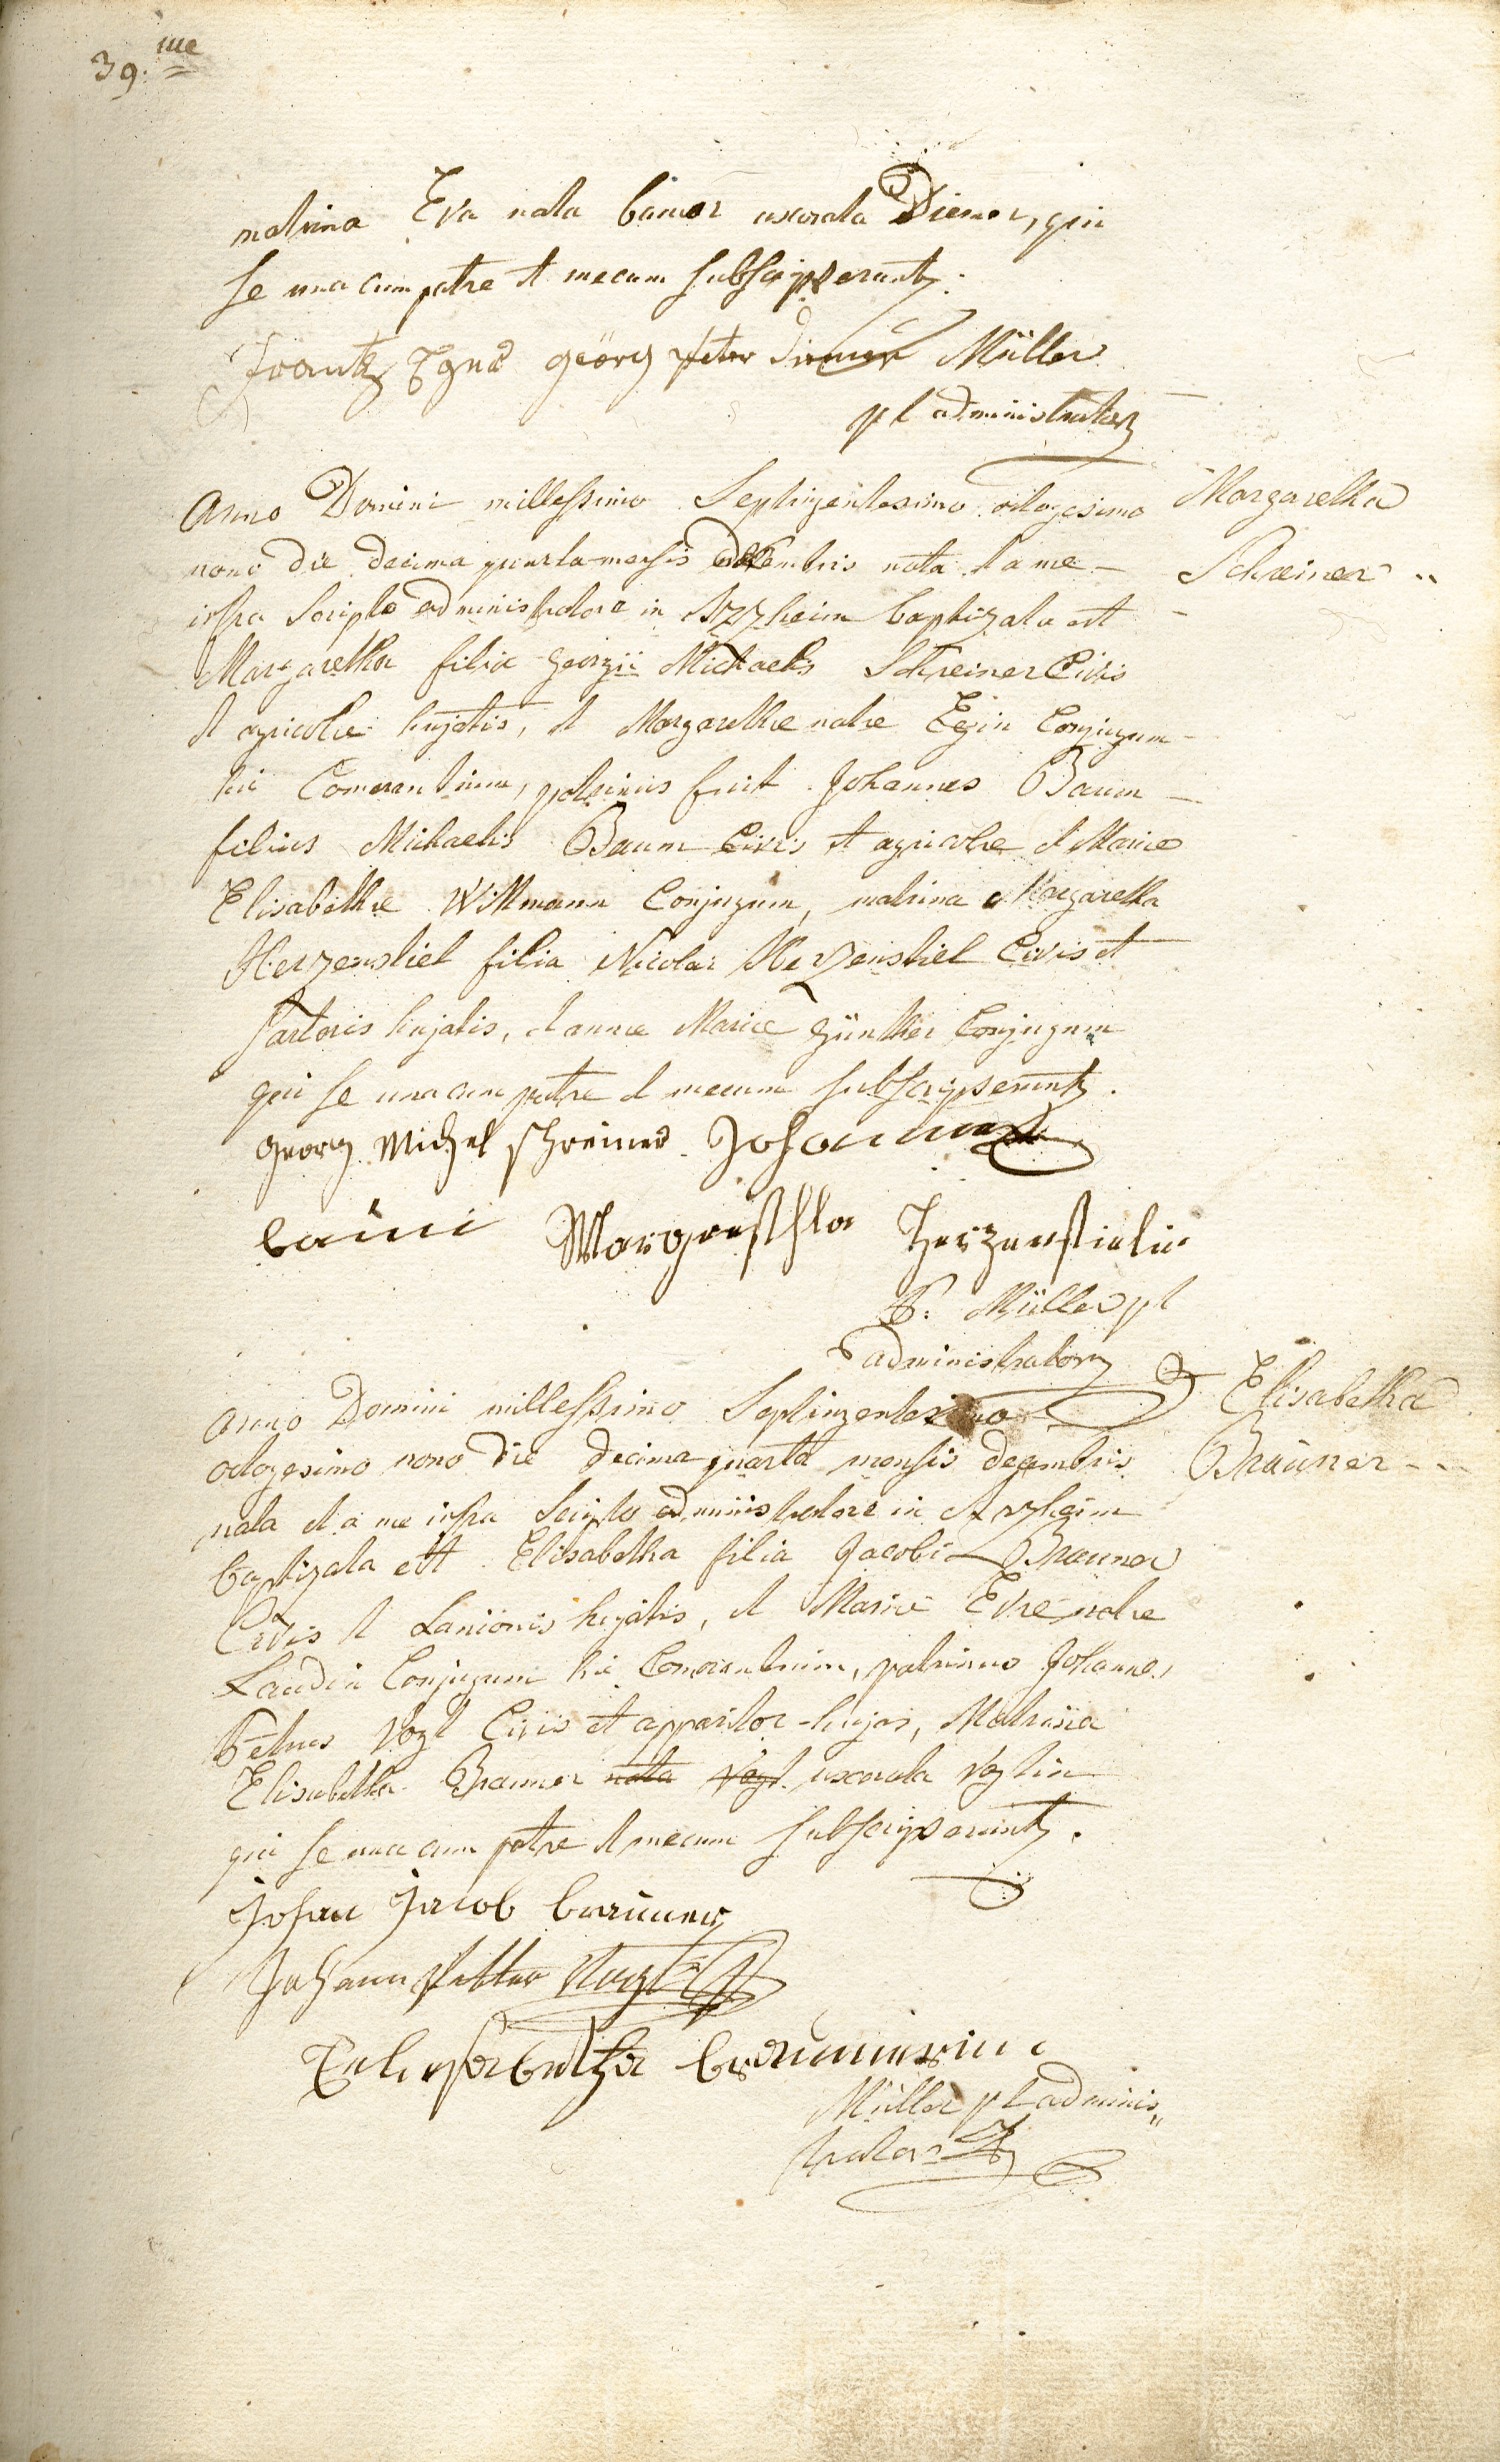 39.me
matrina Eva nata baumer uxorata Diener, qui
se una cum patre et mecum subscripserunt.
Frantz Egnd georg peter diener Müller
pl administrator
Anno Domini millessimo Septingentesimo octogesimo
nono die decima quarta mensis decembris nata et a me
infra scripto administratore in Arzheim baptizata est
Margaretha filia georgii Michaelis Schreiner Civis
et agricolæ hujatis, et Margarethæ natæ Egin Conjugum
hic Comorantium, patrinus fuit Johannes Baum
filius Michaelis Baum Civis et agricolæ et Mariæ
Elisabethæ Wittmann Conjugum, matrina Margaretha
Herzenstiel filia Nicolai Herzenstiel Civis et
sartoris hujatis, et annæ Mariæ günther Conjugum
qui se una cum patre et mecum subscripserunt.
Margaretha
Schreiner
georg Michel schreiner Johannes
baum Margrethla Herzenstielin
P. Müller pl
administrator
anno Domini millessimo Septingentesimo
octogesimo nono die decima quarta mensis decembris
nata et a me infra Scripto administratore in Arzheim
baptizata est Elisabetha filia Jacobi Brauner
Civis et Lanionis hujatis, et Mariæ Evæ natæ
Laudin Conjugum hic Comorantium, patrinus Johannes
Petrus Vogt Civis et apparitor hujas, Matrina
Elisabetha Brauner nata Vogt uxorata Vogtin
qui se una cum patre et mecum subscripserunt.
Elisabetha
Brauner
Johan Jacob brauner
Johann petter Vogt
braunnerin
Müller pl adminis„
trator